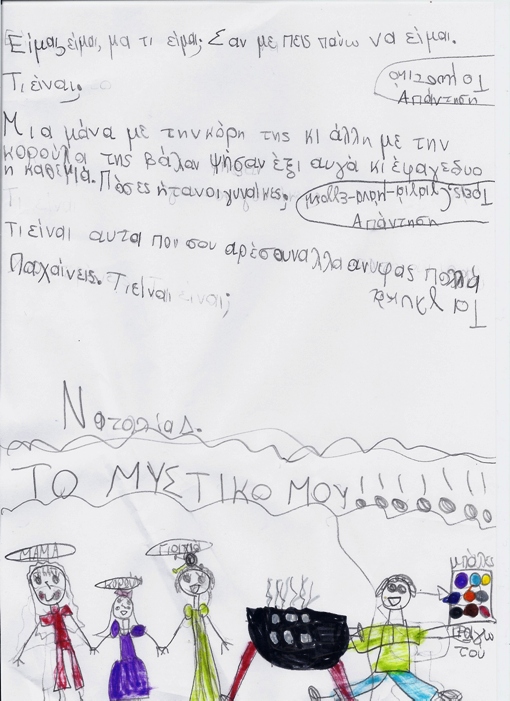 Είμαι,είμαι, μα τι είμαι; Σαν με πεις παύω να είμαι.
Τι είναι;
Το μυστικό
Απάντηση
Μια μάνα με την κόρη της κι άλλη με την
κορούλα της βάλαν ψήσαν έξι αυγά κι έφαγε δυο
η καθεμία. Πόσες ήταν οι γυναίκες;
Τρεις γιαγιά-μάνα-εγγονη
Απάντηση
Τι είναι αυτα που σου αρέσουν αλλα αν φας πολλα
Παχαίνεις. Τι είναι;
Τα γλυκα
Ναταλία Δ.
ΤΟ ΜΥΣΤΙΚΟ ΜΟΥ!!!!!!!
ΜΑΜΑ
Γιαγιά
μπάλες
παγω
του